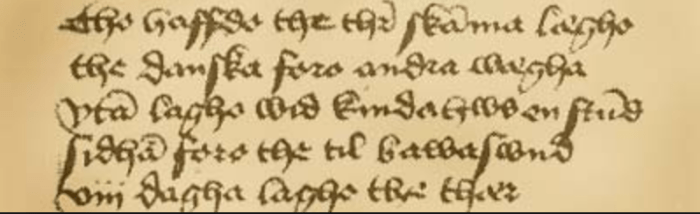 tho haffdo the thr̄ skāma lægho
the danska foro andra wægha
vtā lagho wid Kindahws en stūd
sidhā foro the til bawaswnd
viii dagha lagho the thær